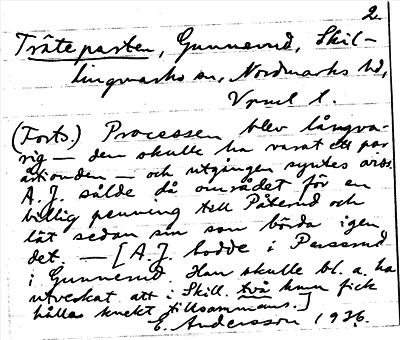 2.
Träteparten, Gunnerud, Skil-
lingmarks sn, Nordmarks hd,
Vrml l.
(Forts.) Processen blev långva-
rig — den skulle ha varat ett par
årtionden — och utgången syntes oviss.
A. J. sålde då området för en
billig penning till Påterud och
lät sedan sin son börda igen
det. — [A. J. bodde i Perserud
i Gunnerud Han skulle bl. a. ha
utverkat att i Skill. två kmn fick
hålla knekt tillsammans.]
E. Andersson 1936.